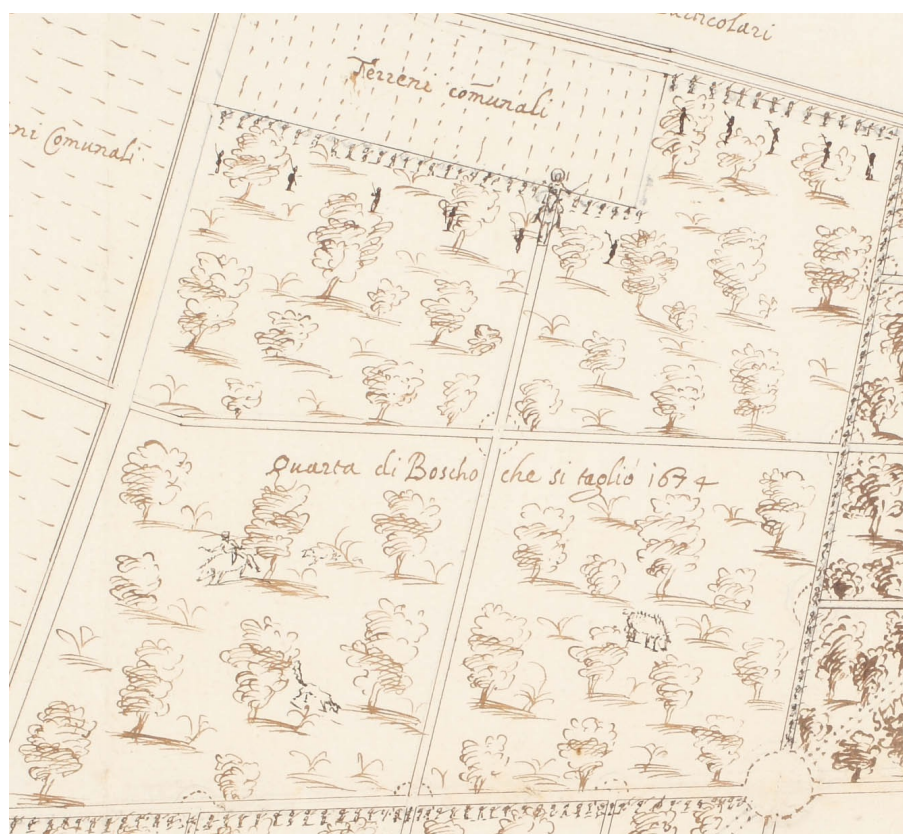 Terreni comunali
Comunali
Quarta di Boscho che si taglió 1674